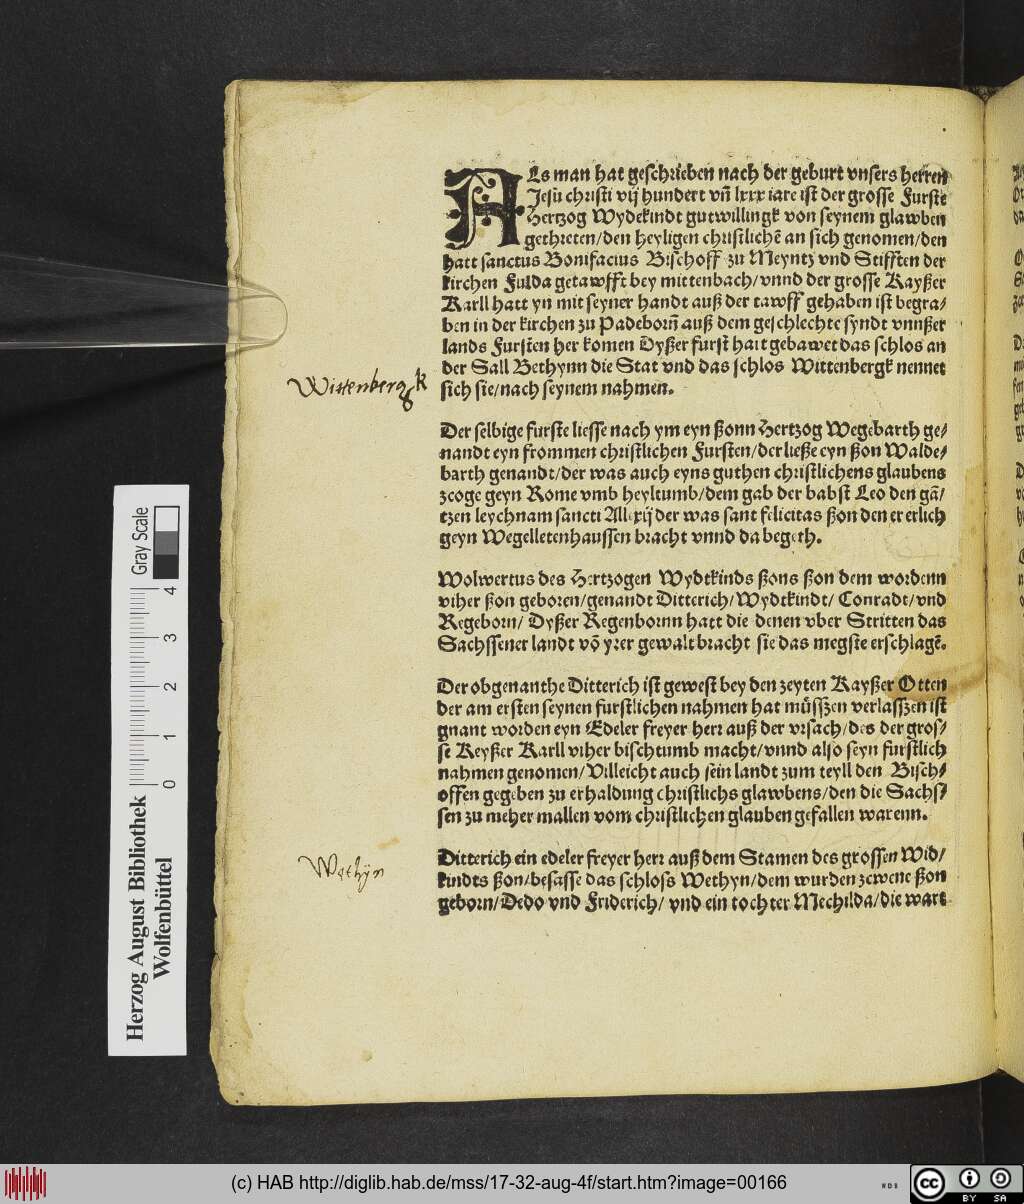 ALs man hat geschrieben nach der geburt vnsers herren
Jesu christi vij hundert vñ lxxx iare ist der grosse Furste
Hertzog Wydekindt gutwillingk von seynem glawben
gethreten/den heyligen christlichē an sich genomen/den
hatt sanctus Bonifacius Bischoff zu Meyntz vnd Stifften der
kirchen Fulda getawfft bey mittenbach/vnnd der grosse Kayßer
Karll hatt yn mit seyner handt auß der tawff gehaben ist begra/
ben in der kirchen zu Padeborñ auß dem geschlechte syndt vnnßer
lands Fursten her komen Dyßer furst hatt gebawet das schlos an
der Sall Bethynn die Stat vnd das schlos Wittenbergk nennet
sich sie/nach seynem nahmen.
Wittenbergk
Der selbige furste liesse nach ym eyn ßonn Hertzog Wegebarth ge/
nandt eyn frommen christlichen Fursten/der ließe eyn ßon Walde/
barth genandt/der was auch eyns guthen christlichens glaubens
zcoge geyn Rome vmb heyltumb/dem gab der babst Leo den gā/
tzen leychnam sancti Allexij der was sant felicitas ßon den er erlich
geyn Wegelletenhaussen bracht vnnd da begeth.
Wolwertus des Hertzogen Wydtkinds ßons ßon dem wordenn
viher ßon geboren/genandt Ditterich/Wydtkindt/ Conradt/vnd
Regeborn/ Dyßer Regenbornn hatt die denen vber Stritten das
Sachssener landt vō yrer gewalt bracht sie das megste erschlagē.
Der obgenanthe Ditterich ist gewest bey den zeyten Kayßer Otten
der am ersten seynen furstlichen nahmen hat müsszen verlasszen ist
gnant worden eyn Edeler freyer herr auß der vrsach/des der gros/
se Keyßer Karll viher bischtumb macht/vnnd also seyn furstlich
nahmen genomen/Villeicht auch sein landt zum teyll den Bisch/
offen gegeben zu erhaldung christlichs glawbens/den die Sachs/
sen zu meher mallen vom christlichen glauben gefallen warenn.
Ditterich ein edeler freyer herr auß dem Stamen des grossen Wid/
kindts ßon/besasse das schloss Wethyn/dem wurden zcwene ßon
geborn/Dedo vnd Friderich/ vnd ein tochter Mechilda/die wart
Wethÿn
Herzog August Bibliothek
Wolfenbüttel
Gray Scale
0 1 2 3 4
(c) HAB http://diglib.hab.de/mss/17-32-aug-4f/start.htm?image=00166
WDB
cc BY SA